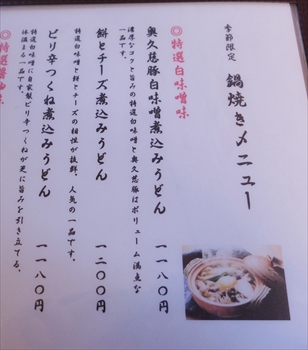 季節限定 鍋焼きメニュー
◎特選白味噌味
奥久慈豚白味噌煮込みうどん 一一八〇円
濃厚なコクと旨みの特選白味噌と奥久慈豚はボリューム満点な
一品です。
餅とチーズ煮込みうどん 一二〇〇円
特選白味噌と餅とチーズの相性が抜群。人気の一品です。
ピリ辛つくね煮込みうどん 一一八〇円
特選白味噌に自家製ピリ辛つくねが更に旨みを引き立てる。
体温まる一品です。
◎特選醤油味